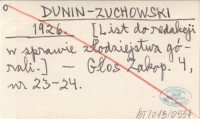 DUNIN-ZUCHOWSKI
1926. [List do redakcji
w sprawie złodziejstwa gó-
rali.] — Głos Zakop. 4,
nr 23-24.